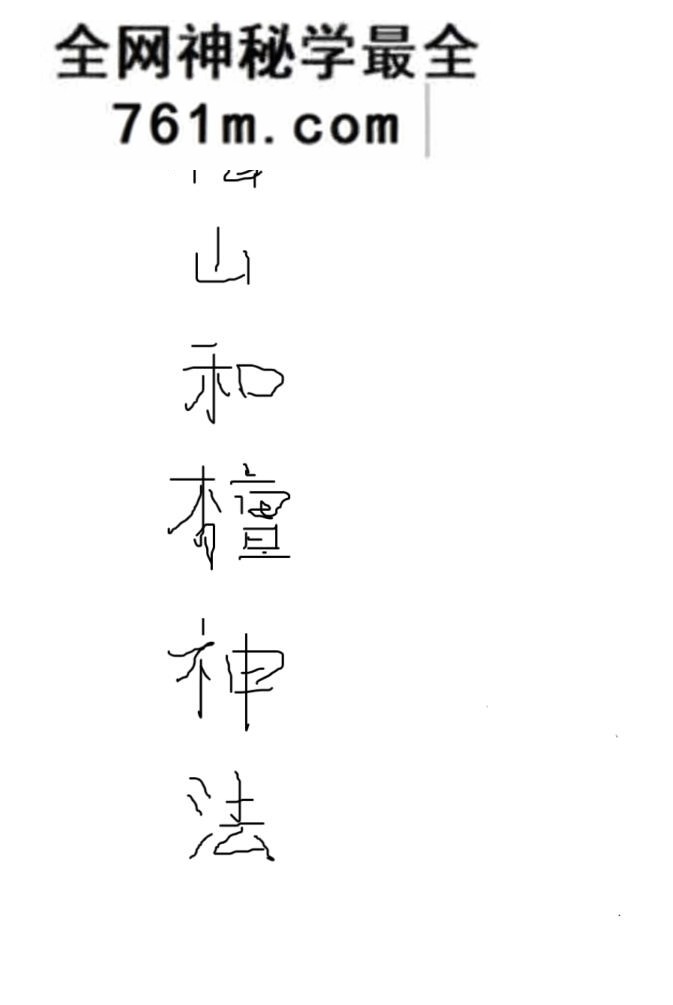 全网神秘学最全
761m.com
山
和
檀
神
法